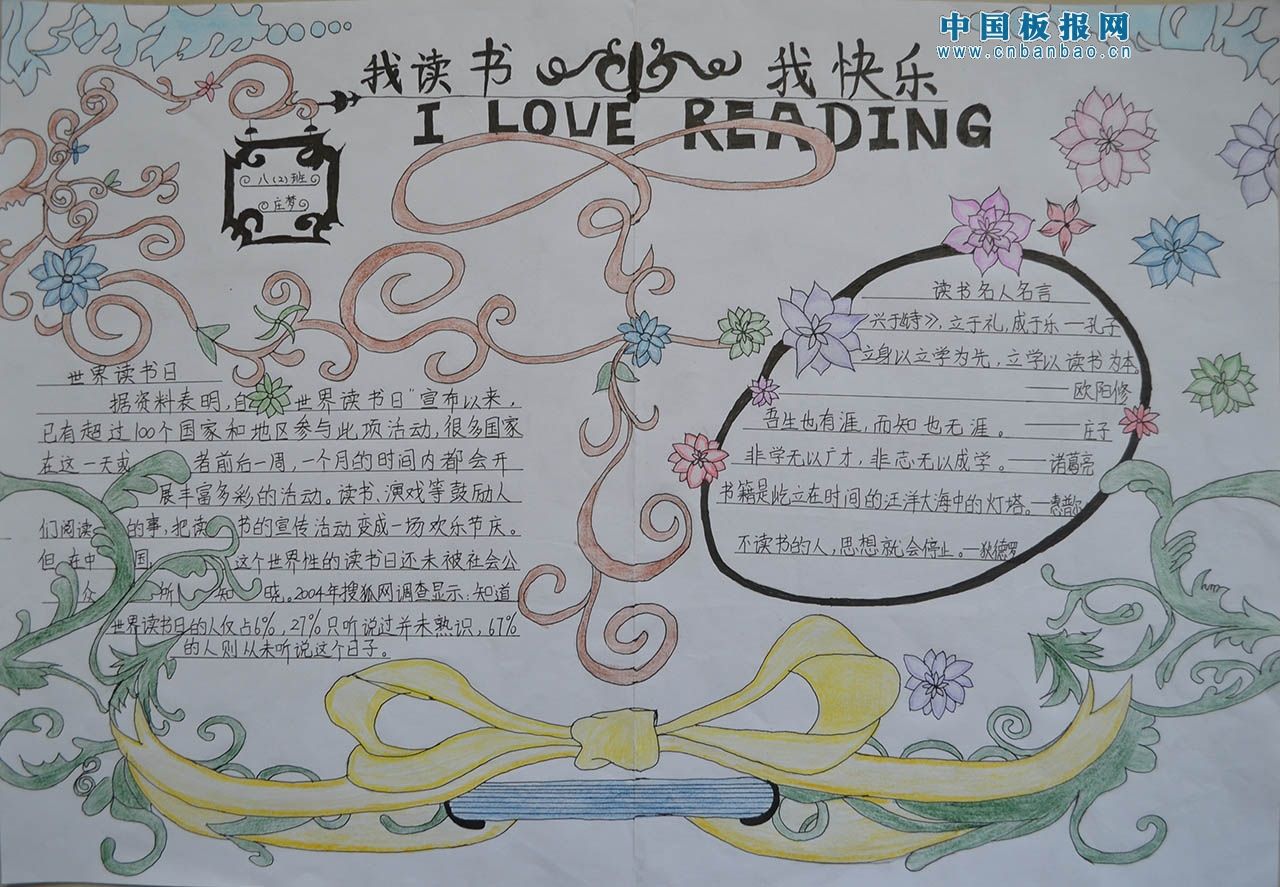 中国板报网
www.cnbanbao.cn
我读书 我快乐
I LOVE READING
八(2)班
庄梦
世界读书日
据资料表明,自 世界读书日"宣布以来,
已有超过100个国家和地区参与此项活动,很多国家
在这一天或 者前后一周,一个月的时间内都会开
展丰富多彩的活动。读书、演戏等鼓励人
们阅读 的事,把读 书的宣传活动变成一场欢乐节庆。
但 在中 国, 这个世界性的读书日还未被社会公
众 所 知 晓。2004年搜狐网调查显示:知道
世界读书日的人仅占6%,27%只听说过并未熟识,67%
的人则从未听说这个日子。
读书名人名言
兴于《诗》,立于礼,成于乐—孔子
立身以立学为先,立学以读书为本。
——欧阳修
吾生也有涯,而知也无涯。——庄子
非学无以广才,非志无以成学。——诸葛亮
书籍是屹立在时间的汪洋大海中的灯塔。—惠普尔
不读书的人,思想就会停止。—狄德罗